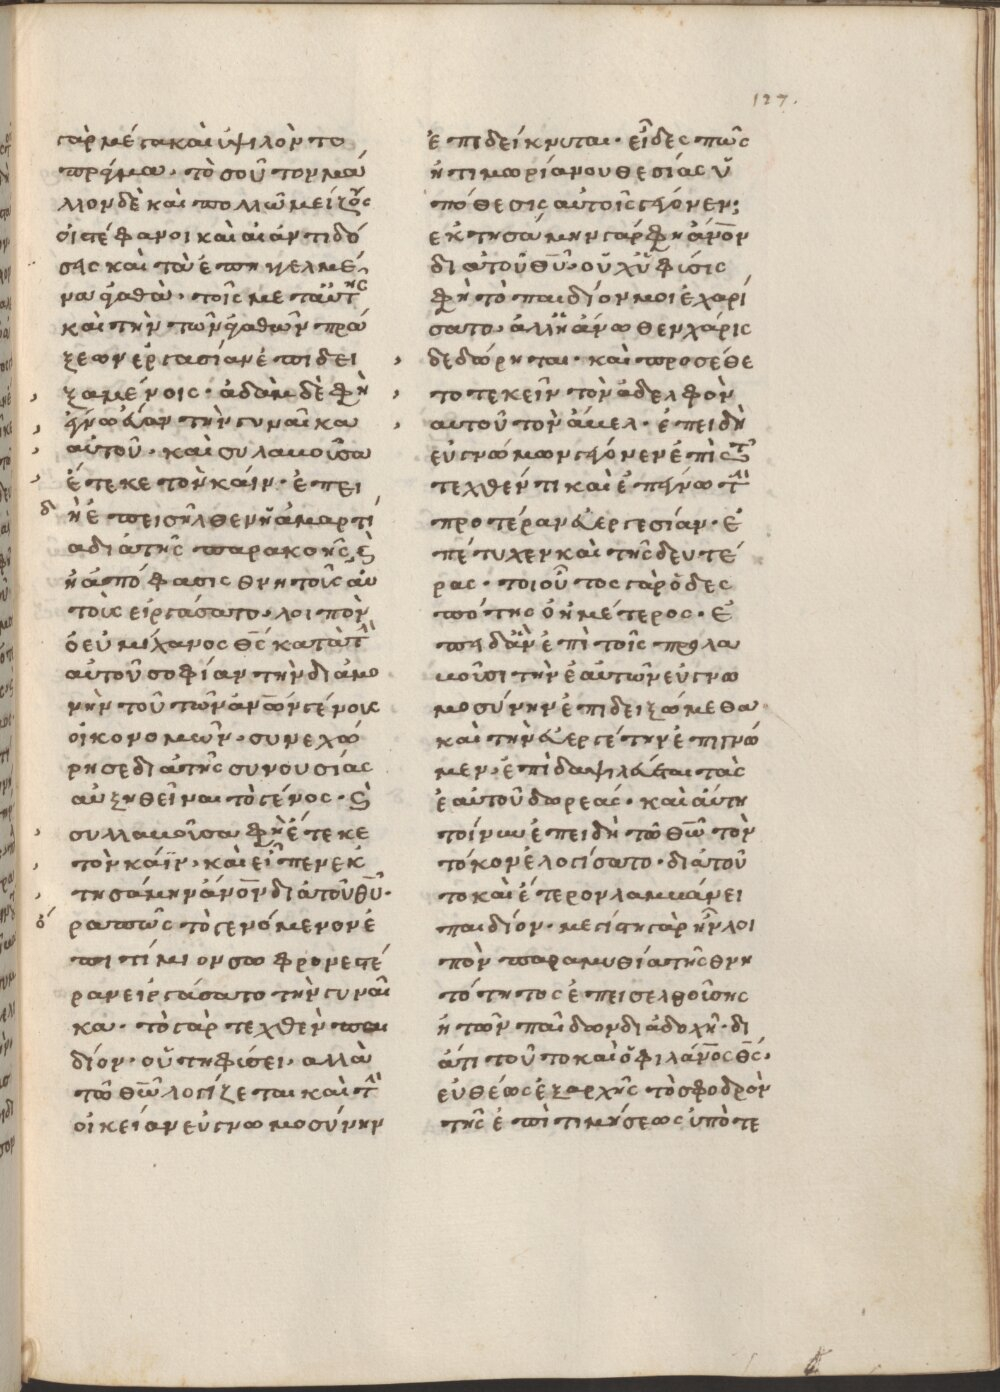 127.
γὰρ μέγα καὶ ὑψιλὸν τὸ
πρᾶγμα· τοσοῦτον μᾶ
λλον δὲ καὶ πολλῷ μείζους
οἱ στέφανοι καὶ αἱ ἀντιδό
σεις καὶ τὰ ἐπηγγελμέ
να ἀγαθὰ· τοῖς μετ' αὐτῆς
καὶ τὴν τῶν ἀγαθῶν πρά
ξεων ἐργασίαν ἐπιδει
ξαμένοις· ἀδὰμ δὲ φὴ
ἔγνω εὔαν τὴν γυναῖκα
αὐτοῦ· καὶ συλαβοῦσα
ἔτεκε τὸν κάϊν· ἐπει
δὴ ἐπεισῆλθεν ἡ ἁμαρτί
α διὰ τῆς παρακοῆς, καὶ
ἡ ἀπόφασις θνητοὺς αὐ
τοὺς εἰργάσατο, λοιπὸν
ὁ εὐμήχανος θς κατὰ τὴν
αὐτοῦ σοφίαν τὴν διαμο
νὴν τοῦ τῶν ἀνων γένους
οἰκονομῶν, συνεχώ
ρησε διὰ τῆς συνουσίας
αὐξηθεῖναι τὸ γένος· καὶ
συλλαβοῦσα φὴ ἔτεκε
τὸν κάϊν, καὶ εἶπεν ἐκ
τησάμην ἄνον διὰ τοῦ θυ·
ὅρα πῶς τὸ γενόμενον ἐ
πιτίμιον σωφρονεστέ
ραν εἰργάσατο τὴν γυναῖ
κα· τὸ γὰρ τεχθὲν παι
δίον· οὐ τῇ φύσει· ἀλλὰ
τῷ θω λογίζεται καὶ τὴν
οἰκείαν εὐγνωμοσύνην
ἐπιδείκνυται· εἶδες πῶς
ἡ τιμωρία νουθεσίας ὑ
πόθεσις αὐτοῖς γέγονεν;
ἐκτησάμην γάρ φη ἄνον
διὰ τοῦ θυ· οὐχ ἡ φύσις
φὴ τὸ παιδίον μοι ἐχαρί
σατο, ἀλλ' ἡ ἄνωθεν χάρις
δεδώρηται· καὶ προσέθε
το τεκεῖν τὸν ἀδελφὸν
αὐτοῦ τὸν ἄβελ· ἐπειδὴ
εὐγνώμων γέγονεν ἐπὶ τῷ
τεχθέντι καὶ ἐπέγνω τὴν
προτέραν εὐεργεσίαν· ἐ
πέτυχεν καὶ τῆς δευτέ
ρας· τοιοῦτος γὰρ ὁ δεσ
πότης ὁ ἡμέτερος· ἐ
πειδὰν ἐπὶ τοῖς προλα
βοῦσι τὴν ἑαυτῶν εὐγνω
μοσύνην ἐπιδειξώμεθα·
καὶ τὴν εὐεργέτην ἐπιγνῶ
μεν, ἐπιδαψιλεύεται τὰς
ἑαυτοῦ δωρεάς· καὶ αὕτη
τοίνυν ἐπειδὴ τῷ θω τὸν
τόκον ἐλογίσατο· διὰ τοῦ
το καὶ ἕτερον λαμβάνει
παιδίον· μεγίστη γὰρ ἦν λοι
πὸν παραμυθία τῆς θνη
τότητος ἐπεισελθούσης
ἡ τῶν παίδων διαδοχὴ· δι
άτι τοῦτο καὶ ὁ φιλάνος θς·
εὐθέως ἐξ ἀρχῆς τὸ σφοδρὸν
τῆς ἐπιτιμήσεως ὑποτε